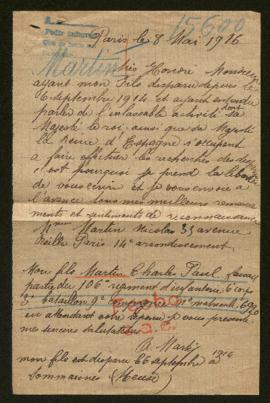 15600
Paris le 8 Mai 1916
Martin
très Honoré Monsieur
ayant mon fils disparu depuis le
6 septembre 1914 et ayant entendu
parler de l'infatigable activité
Majesté le roi, ainsi que sa Majesté
la Reine d'Espagne s'occupent
a faire effectuer les recherches des
c'est pourquoi je prend la liberté
de vous écrire et je vous envoie a
l'avance tous mes meilleurs remerci
ments et sentiments de reconnaissance
Mme Martin Nicolas 35 avenue
Reille Paris 14e arrondissement
Mon fils Martin Charles Paul faisait
partie du 106e regiment d'infanterie 6e corps
3e bataillon 9e Compagnie
en attendant votre réponse je vous presente
mes sincères salutations
Martin
mon fils est disparu le 6 septembre a
Sommaisnes (Meuse)